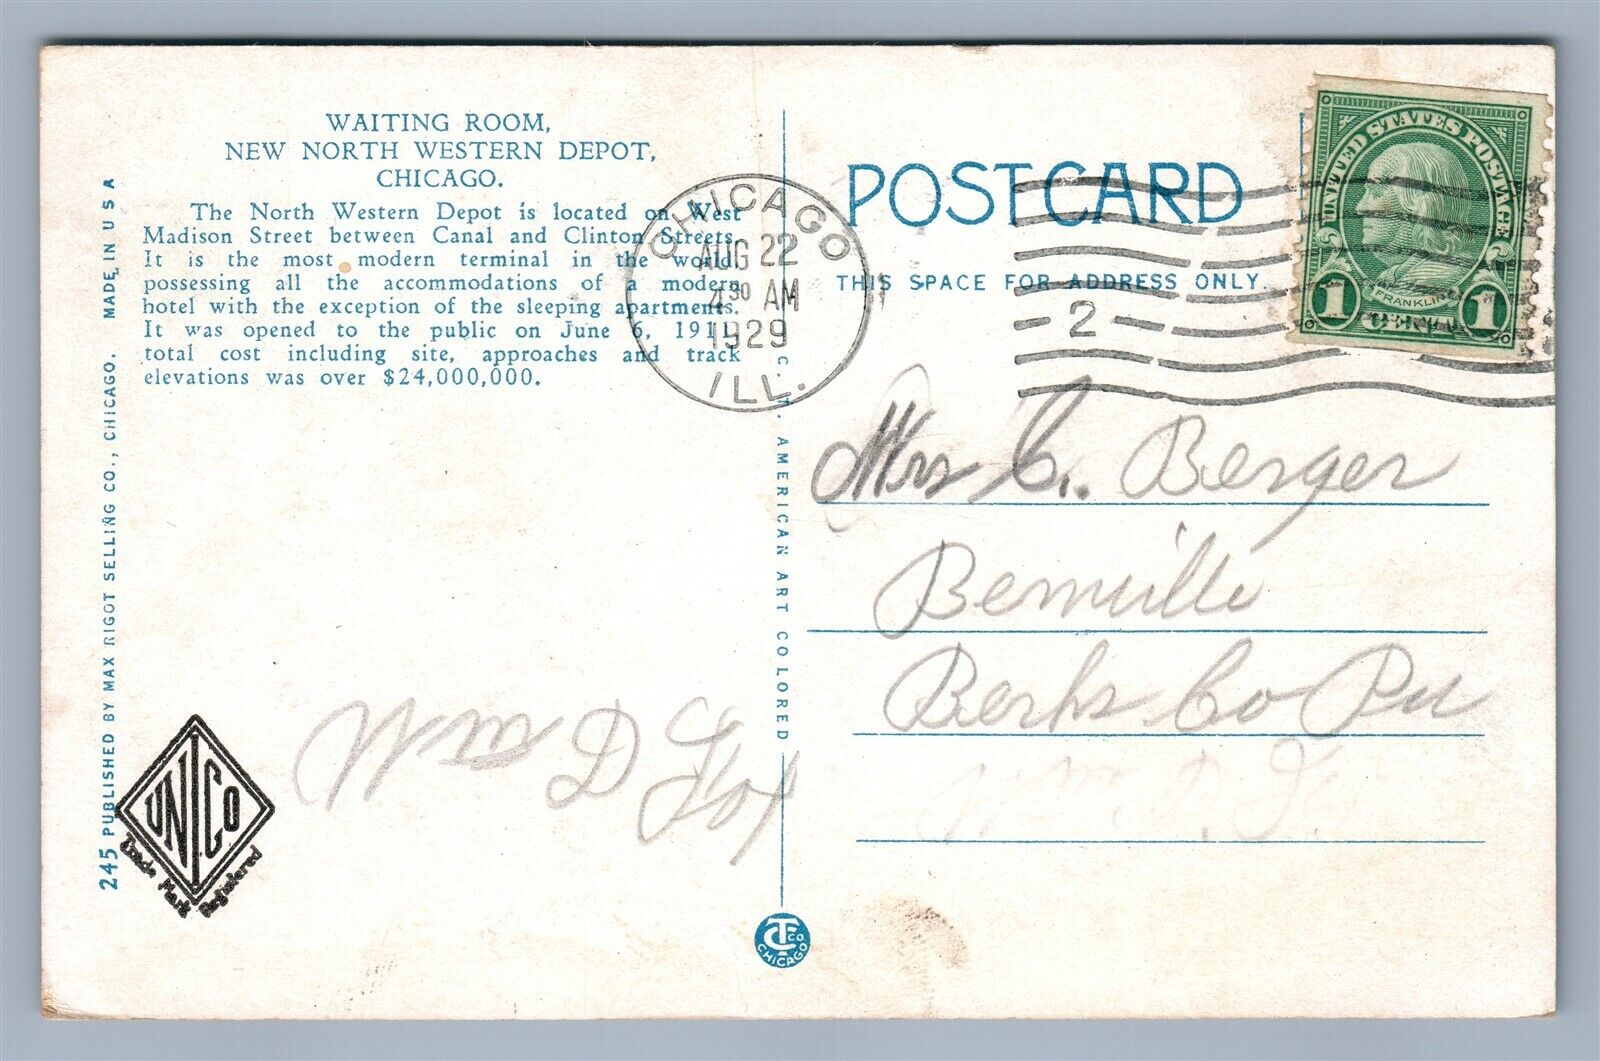 WAITING ROOM,
NEW NORTH WESTERN DEPOT,
CHICAGO.
The North Western Depot is located on West
Madison Street between Canal and Clinton Streets.
It is the most modern terminal in the world,
possessing all the accommodations of a modern
hotel with the exception of the sleeping apartments.
It was opened to the public on June 6, 1911,
total cost including site, approaches and track
elevations was over $24,000,000.
245 PUBLISHED BY MAX RIGOT SELLING CO., CHICAGO. MADE IN U S A
UNICO
Trade Mark Registered
Wm D Fox
C. T. AMERICAN ART COLORED
CT CO
CHICAGO
CHICAGO
AUG 22
4 30 AM
1929
ILL.
POST CARD
THIS SPACE FOR ADDRESS ONLY.
2
UNITED STATES POSTAGE
FRANKLIN
1 CENT 1
Mrs C. Berger
Bernville
Berks Co Pa